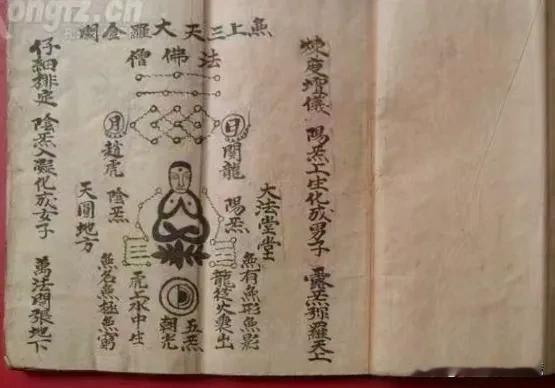 無上三天大羅金闕
法佛僧
煉度壇儀 陽炁上生化成男子 靈炁弥羅天上
大法堂堂
日 関龍 陽炁
無有無形無影
龍從火裏出
五炁
朝元
虎上水中生
月 趙虎 陰炁
無名無極無窮
天圓地方
仔細排定 陰炁入凝化成女子 萬法開張地下
ongfz.cn